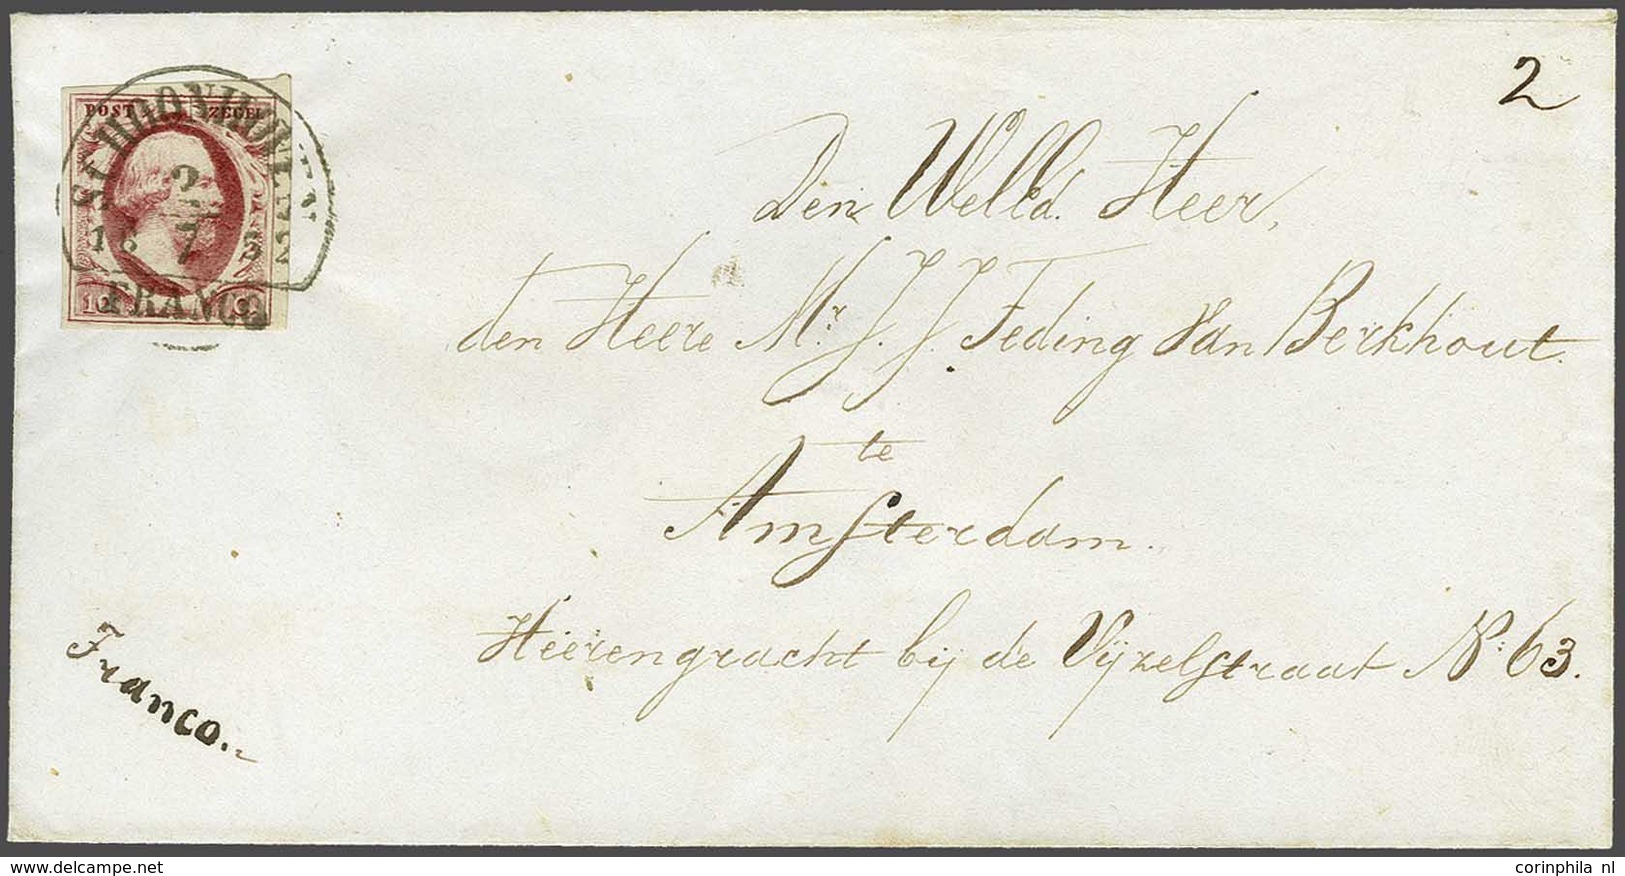 2
POST ZEGEL
SCHOONHOVEN
2
7
18 52
FRANCO
10 C.
Den WelEd. Heer,
den Heere Mr. J. J. Teding van Berkhout.
te
Amsterdam.
Heerengracht bij de Vijzelstraat No: 63.
Franco.
corinphila nl